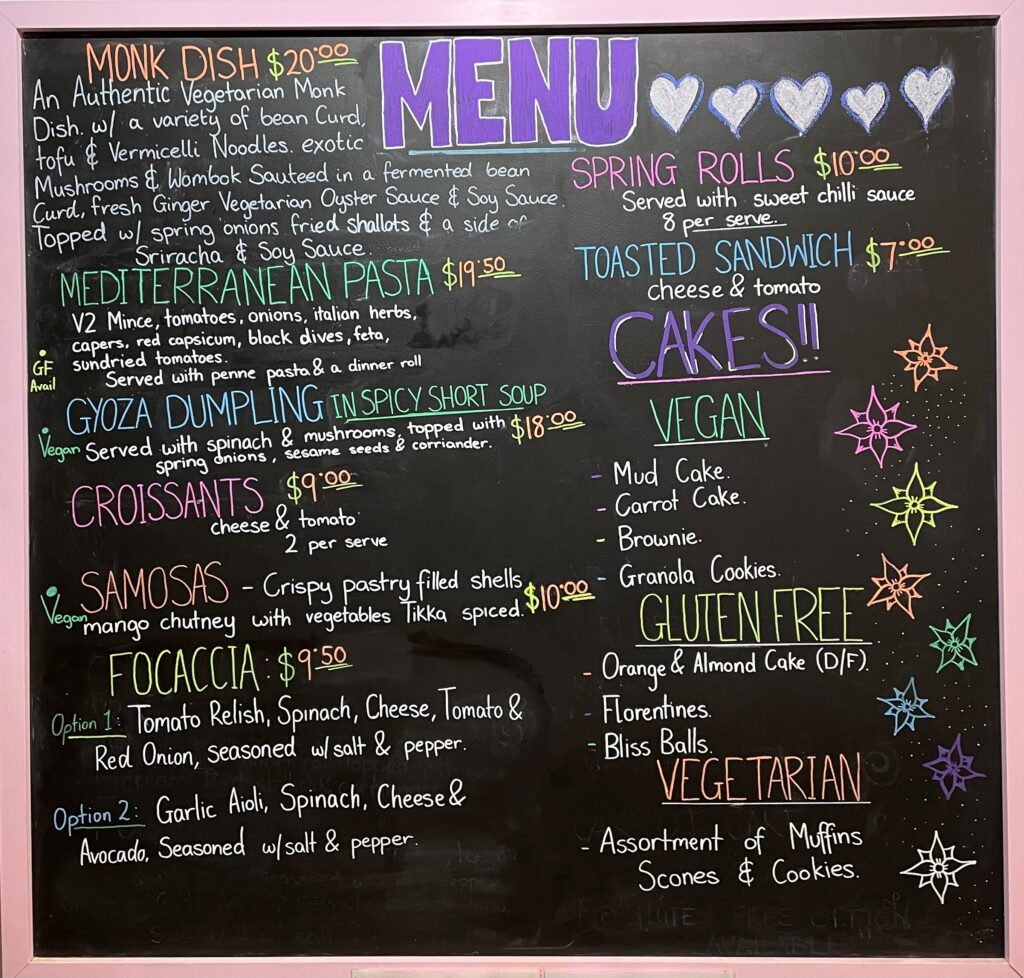 MENU
MONK DISH $20.00
An Authentic Vegetarian Monk
Dish. w/ a variety of bean Curd,
tofu & Vermicelli Noodles. exotic
Mushrooms & Wombok Sauteed in a fermented bean
Curd, fresh Ginger Vegetarian Oyster Sauce & Soy Sauce.
Topped w/ spring onions fried shallots & a side of
Sriracha & Soy Sauce.
MEDITERRANEAN PASTA $19.50
V2 Mince, tomatoes, onions, italian herbs,
capers, red capsicum, black dives, feta,
sundried tomatoes.
Served with penne pasta & a dinner roll
GF
Avail
GYOZA DUMPLING IN SPICY SHORT SOUP
Vegan Served with spinach & mushrooms, topped with $18.00
spring onions, sesame seeds & corriander.
CROISSANTS $9.00
cheese & tomato
2 per serve
SAMOSAS - Crispy pastry filled shells, $10.00
Vegan mango chutney with vegetables Tikka spiced.
FOCACCIA: $9.50
Option 1: Tomato Relish, Spinach, Cheese, Tomato &
Red Onion, seasoned w/salt & pepper.
Option 2: Garlic Aioli, Spinach, Cheese &
Avocado, Seasoned w/salt & pepper.
SPRING ROLLS $10.00
Served with sweet chilli sauce
8 per serve.
TOASTED SANDWICH $7.00
cheese & tomato
CAKES!!
VEGAN
- Mud Cake.
- Carrot Cake.
- Brownie.
- Granola Cookies.
GLUTEN FREE
- Orange & Almond Cake (D/F).
- Florentines.
- Bliss Balls.
VEGETARIAN
- Assortment of Muffins
Scones & Cookies.